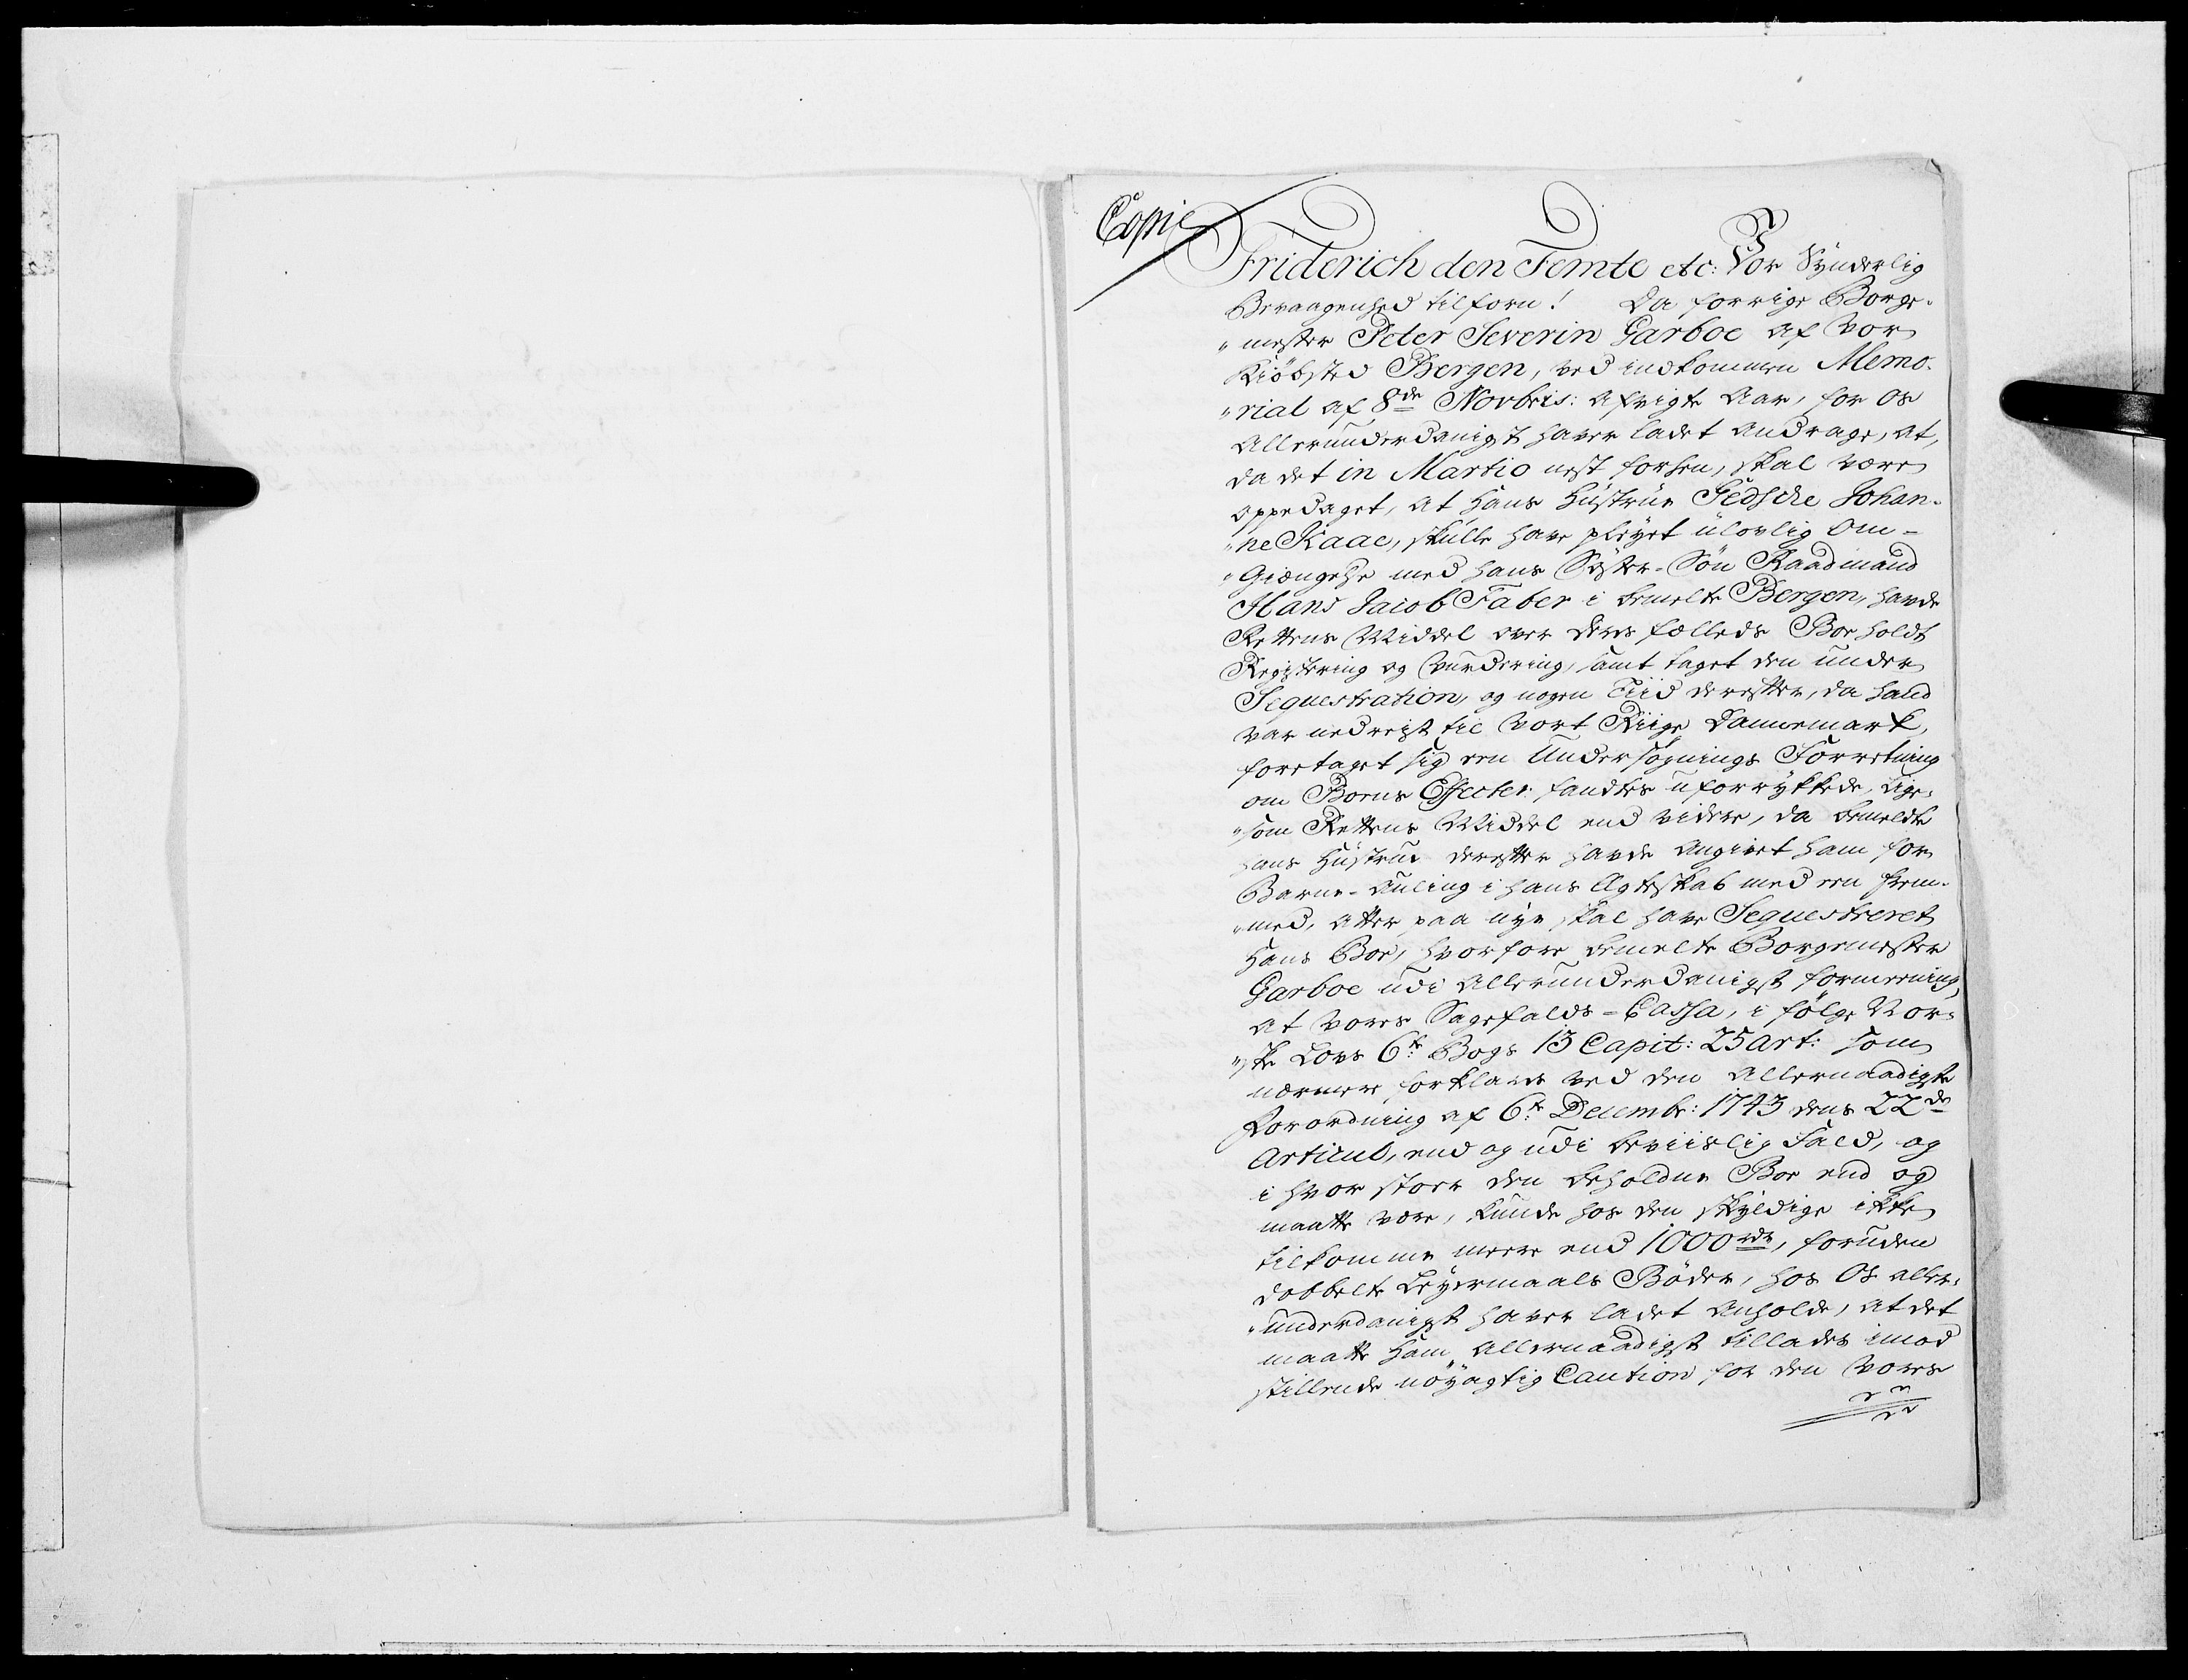 Copie
Friderich den Femte etc: Vor Synderlig
Bevaagenhed tilforn! Da forrige Borge-
"mester Peter Severin Garboe af Vor
Kiöbsted Bergen, ved indkommen Memo-
"rial af 8de Novbris: afvigte Aar, for Os
Allerunderdanigst haver ladet andrage, at,
da det in Martio nest forhen, skal være
oppedaget, at Hans Hustrue Gedsche Johan-
"ne Kaae, skulle have pleyet ulovlig Om-
"Giængelse med hans Söster-Sön Raadmand
Hans Jacob Faber i bemelte Bergen, havde
Rettens Middel over deres fælleds Boe holdt
Registering og Vurdering, samt taget den under
Sequestration, og nogen Tiid derefter, da hand
var nedreist til Vort Riige Dannemark,
foretaget sig een Undersøgnings Forretning
om Boens Effecter fandtes uforrykkede, lige-
"som Rettens Middel end videre, da bemeldte
hans Hustrue derefter havde angivet ham for
Barne-Auling i hans Egteskab med een frem-
"med, atter paa nye skal have Sequestreret
Hans Boe, hvorfore bemelte Borgemester
Garboe udi Allerunderdanigst formeening,
at Vores Sagefalds-Cassa, i fölge Nor-
"ske Lovs 6te Bogs 13 Capit: 25 Art: som
nærmere forklares ved den Allernaadigste
Forordning af 6te Decembr: 1743 dens 22de
Articul, end og udi beviislig Fald, og
i hvor stoer den beholdne Boe end og
maatte være, kunde hos den skyldige ikke
tilkomme meere end 1000 rdr, foruden
dobbelte Leyermaals Böder, hos Os aller-
"underdanigst haver ladet anholde, at det
maatte Ham Allernaadigst tillades imod
stillende nöyagtig Caution for den Vores